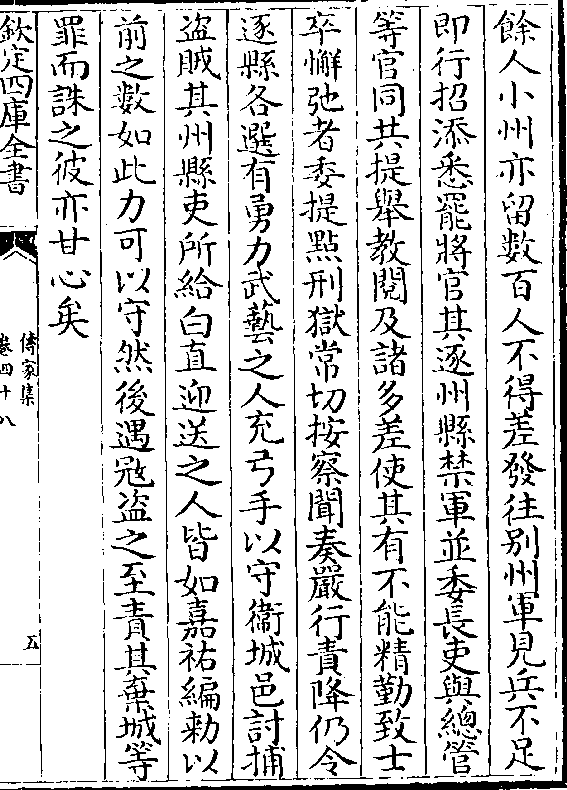 餘人小州亦留數百人不得差發往别州軍見兵不足
即行招添悉罷將官其逐州縣禁軍並委長吏與總管
等官同共提舉教閱及諸多差使其有不能精勤致士
卒懈弛者委提點刑獄常切按察聞奏嚴行責降仍令
逐縣各選有勇力武藝之人充弓手以守衞城邑討捕
盗賊其州縣吏所給白直迎送之人皆如嘉祐編勅以
前之數如此力可以守然後遇冦盗之至責其棄城等
罪而誅之彼亦甘心矣
欽定四庫全書
傳家集
卷四十八
五